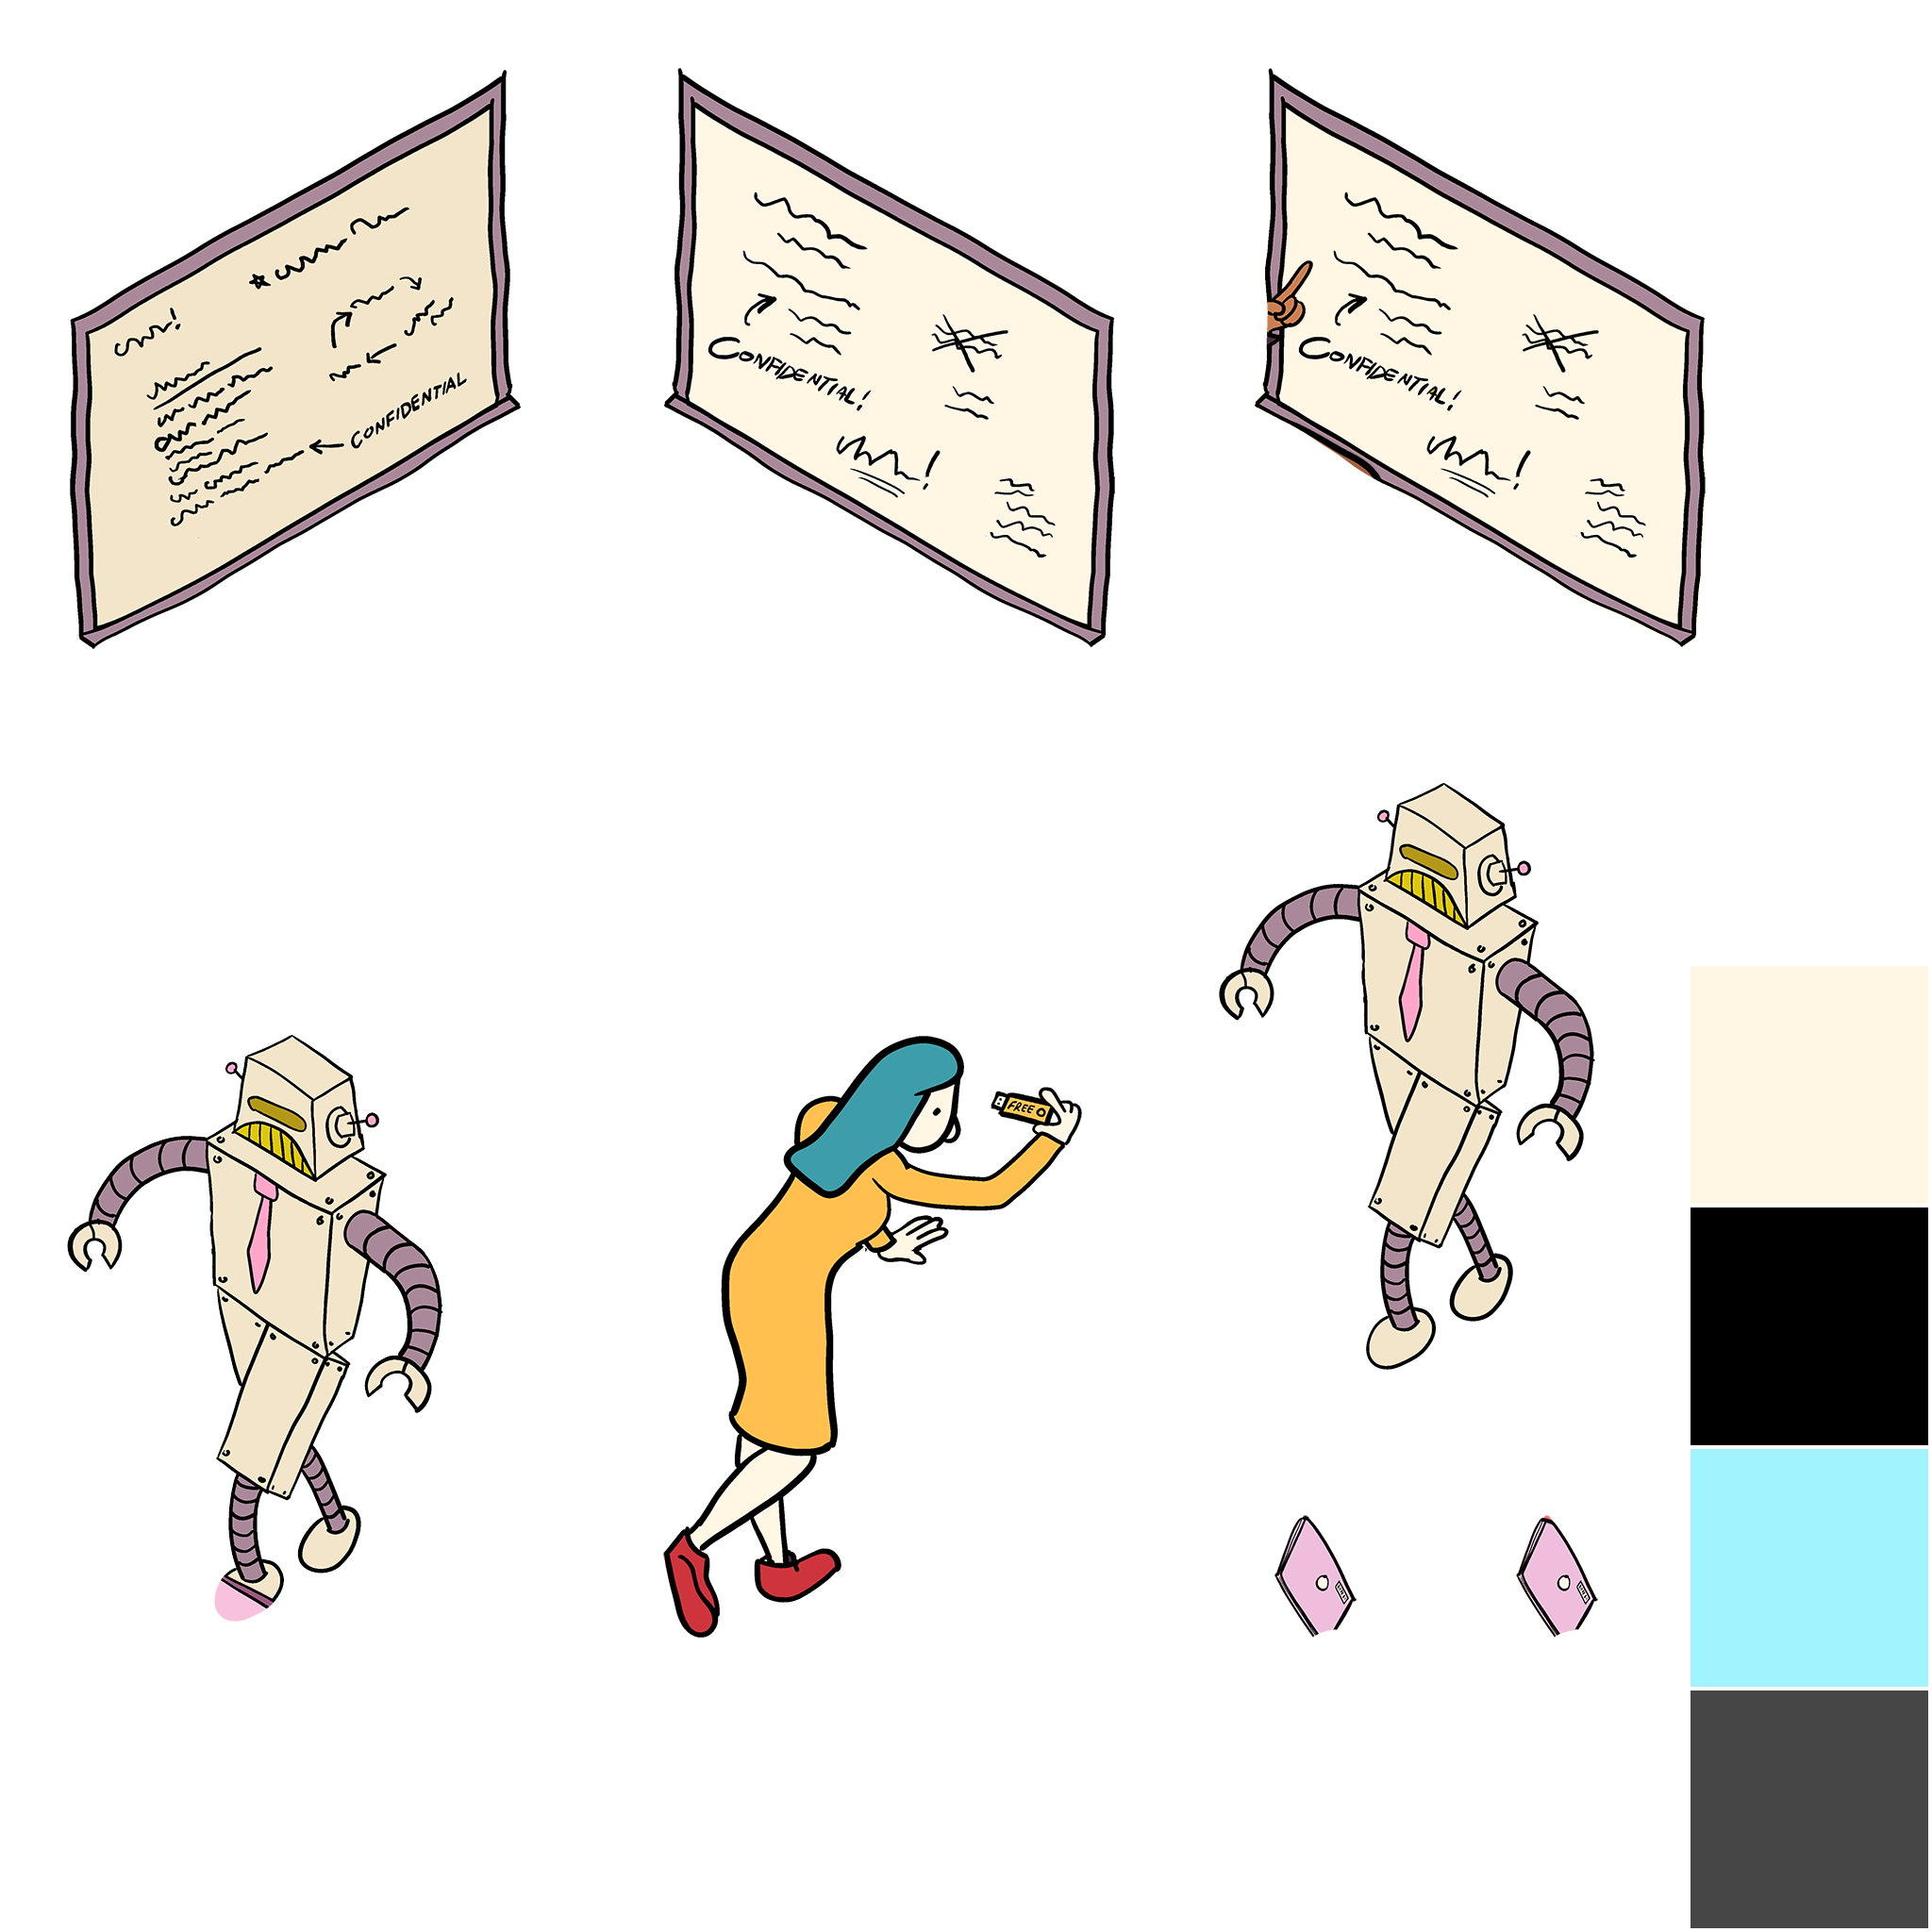 CONFIDENTIAL
CONFIDENTIAL!
CONFIDENTIAL!
FREE